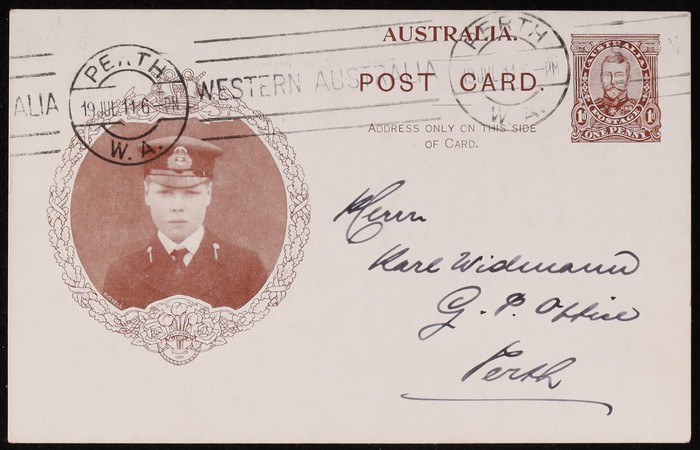 AUSTRALIA.
POST CARD.
ADDRESS ONLY ON THIS SIDE
OF CARD.
AUSTRALIA
POSTAGE
1d ONE PENNY 1d
PERTH
19 JUL 11 6-PM
W.A.
ALIA
WESTERN AUSTRALIA
PERTH
19 JUL 11 6-PM
W.A.
Herrn
Karl Widmann
G. P. Office
Perth